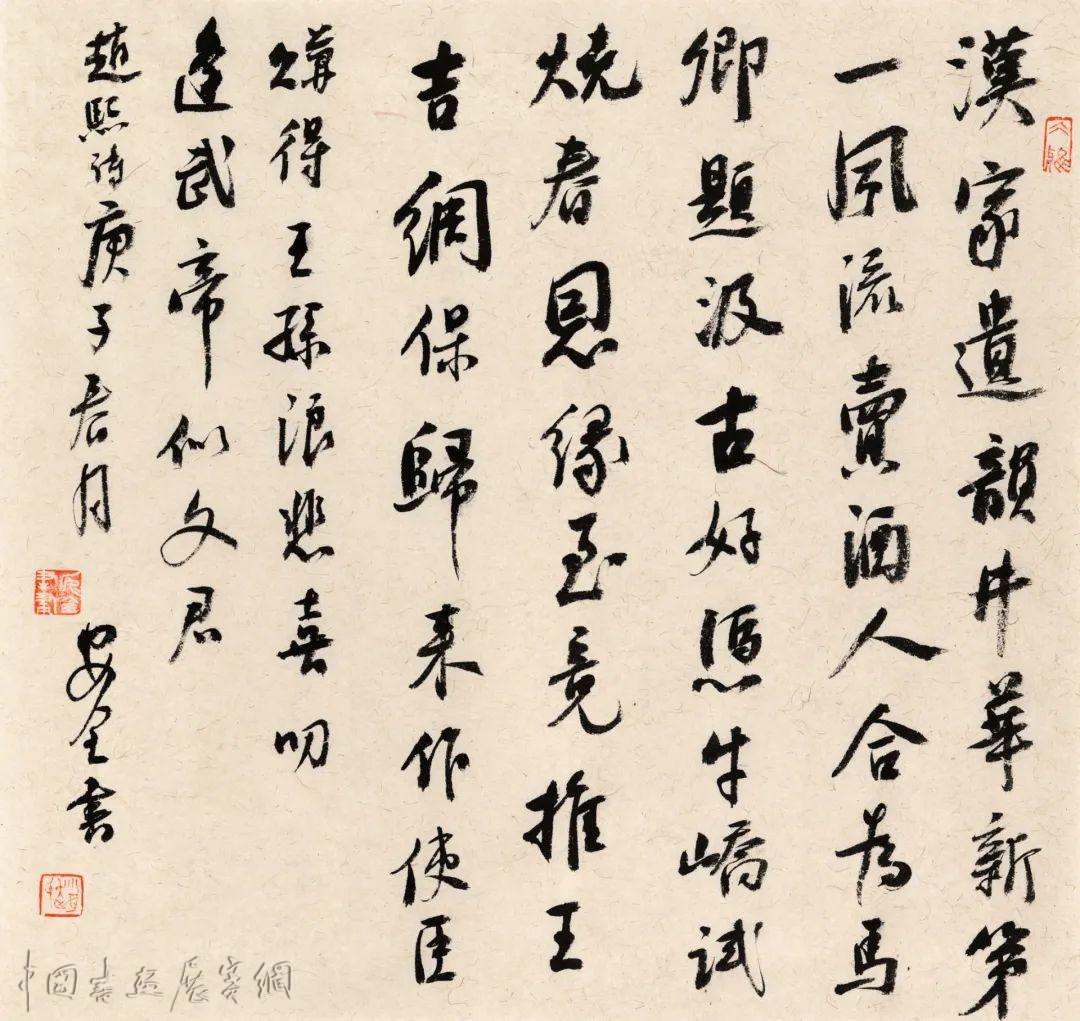 漢家遺韻井華新第
一風流賣酒人合為馬
卿題汲古好憑牛嶠試
燒春恩緣至竟推王
吉綢保歸來作使臣
購得王孫浪悲喜叨
逢武帝似文君
趙熙詩庚子春月
安全書
中國書法展賽網